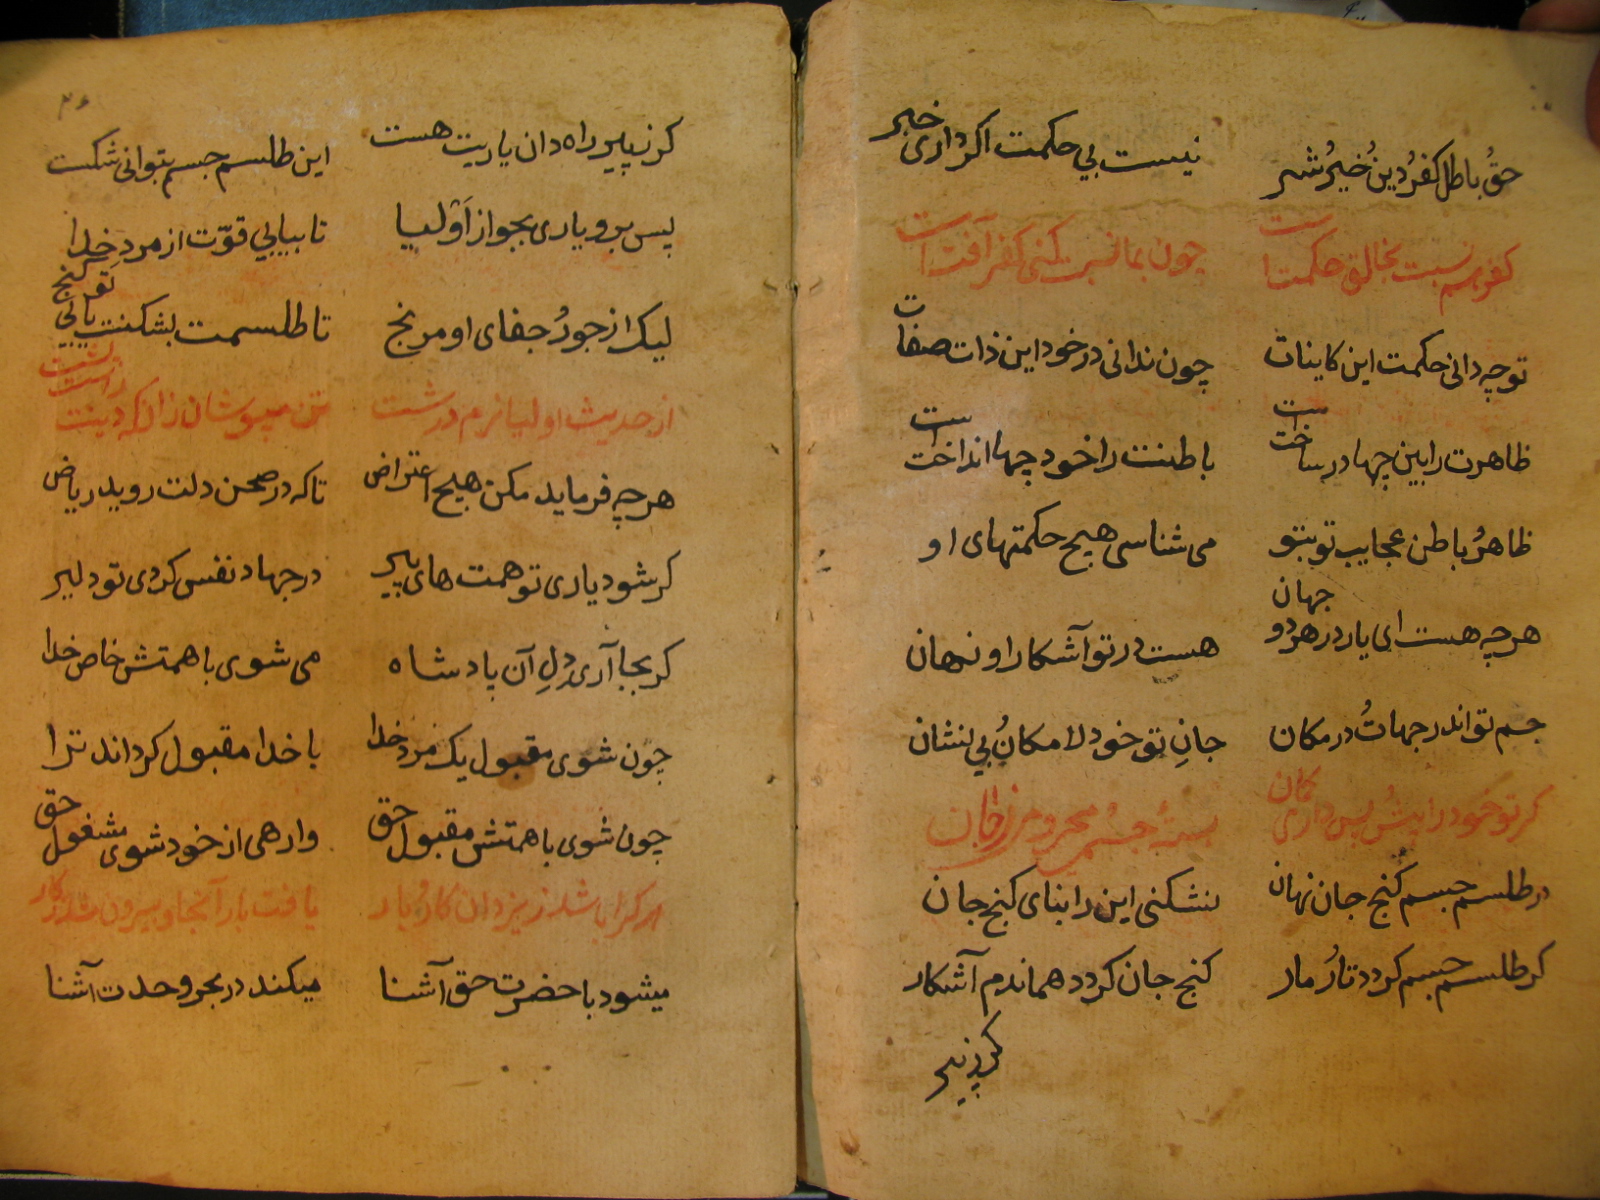 حقُ باطل کفرُ دینُ خیرُ شر نیست بی حکمت اکر داری خبر
کفر هم نسبت بخالق حکمتست چون بما نسبت کنی کفر آفتست
تو چه دانی حکمت این کاینات چون ندانی در خود این ذات صفات
ظاهرت را بین چها در ساختست باطنت را خود چها انداختست
ظاهرُ باطن عجایب تو بتو می شناسی هیچ حکمتهای او
هرچه هست ای یار در هر دو جهان هست در تو آشکارا و نهان
جسم تو اندر جهاتُ در مکان جانِ تو خود لامکانُ بی نشان
کر تو خود را پیشُ پس داری کمان بستهٔ جسمی و محروم ز جان
در طلسم جسم کنج جان نهان نشکنی این را نیابی کنج جان
کر طلسم جسم کردد تارُ مار کنج جان کردد هماندم آشکار
کر ز پیر
۴۶
کر ز پیر راه دان یاریت هست این طلسم جسم بتوانی شکست
پس برو یاری بجو از اولیا تا بیابی قوّت از مردِ خدا
لیک از جورُ جفای او مرنج تا طلسمت بشکنت یابی تو کنج
از حدیث اولیا نرم درشت تن مپوشان زانکه دینت راست پشت
هرچه فرماید مکن هیچ اعتراض تا که در صحن دلت روید ریاض
کر شود یاری تو همت های پیر در جهاد نفس کردی تو دلیر
کر بجا آری دلِ آن پادشاه می شوی با همتش خاص خدا
چون شوی مقبول یک مرد خدا با خدا مقبول کرداند ترا
چون شوی با همتش مقبول حق وارهی از خود شوی مشغول حق
هر کرا باشد ز یزدان کارُ بار یافت بار آنجا و بیرون شد ز کار
میشود با حضرت حق آشنا میکند در بحر وحدت آشنا